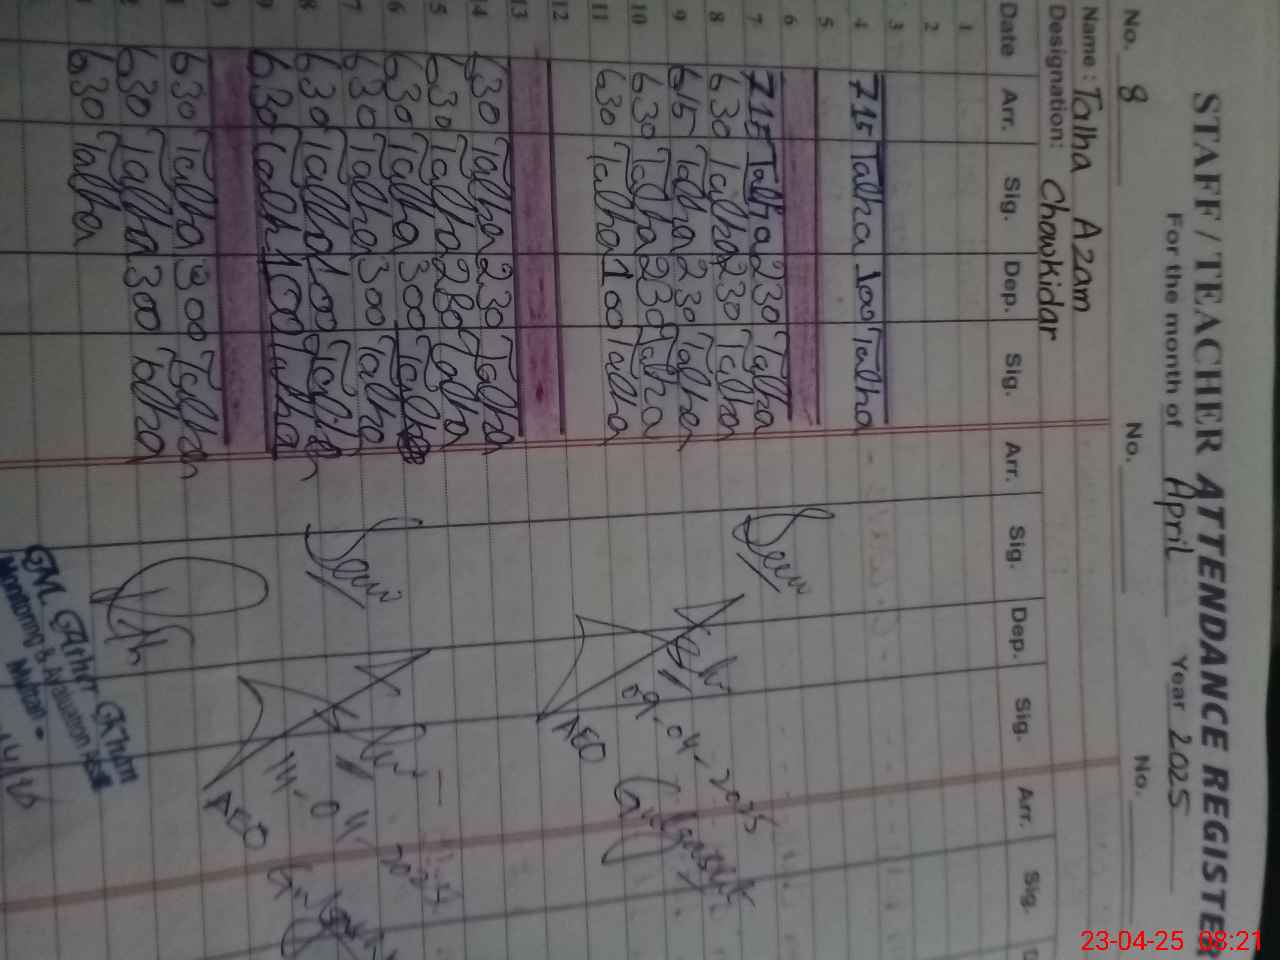 STAFF / TEACHER ATTENDANCE REGISTER
For the month of April Year 2025
No. 8 No. No.
Name: Talha Azam
Designation: Chowkidar
Date Arr. Sig. Dep. Sig. Arr. Sig. Dep. Sig. Arr. Sig.
1
2
3
4 715 Talha 100 Talha
5
6
7 715 Talha 230 Talha
8 630 Talha 230 Talha
9 615 Talha 230 Talha
10 630 Talha 230 Talha
11 630 Talha 100 Talha
12
13
14 630 Talha 230 Talha
15 630 Talha 230 Talha
6 630 Talha 300 Talha
7 630 Talha 300 Talha
8 630 Talha 100 Talha
9 630 Talha 100 Talha
630 Talha 300 Talha
630 Talha 300 Talha
630 Talha
09-04-2025
AEO
14-04-2025
AEO
M. Ather Khan
Monitoring & Evaluation
Multan
23-04-25 08:21